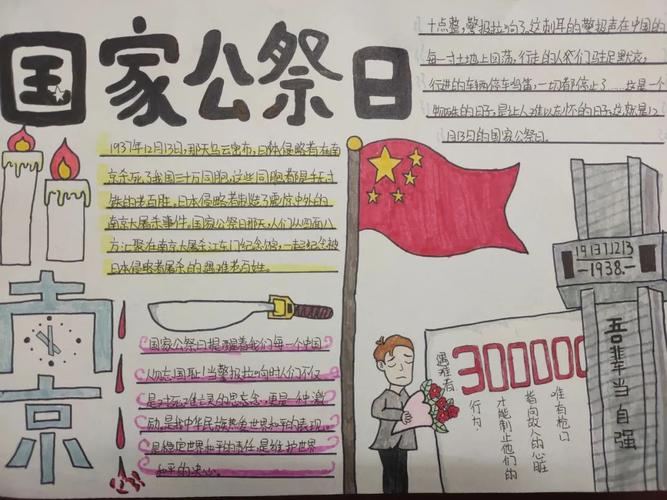 国家公祭日
十点整,警报拉响了,这刺耳的警报声在中国的
每一寸土地上回荡,行走的人们驻足默哀,
行进的车辆停车鸣笛,一切都停止了……这是一个
特殊的日子,是让人难以忘怀的日子,这就是12
月13日的国家公祭日。
1937年12月13日,那天乌云密布,日本侵略者在南
京杀死了我国三十万同胞,这些同胞都是手无寸
铁的老百姓,日本侵略者制造了震惊中外的
南京大屠杀事件,国家公祭日那天,人们从四面八
方汇聚在南京大屠杀江东门纪念馆,一起纪念被
日本侵略者屠杀的遇难老百姓。
南京
国家公祭日提醒着我们每一个中国
人勿忘国耻!当警报拉响时人们不仅
是对死难生灵的思念,更是一种激
励,是我中华民族热爱世界和平的表现,
是稳定世界和平的责任,是维护世界
和平的决心。
19137.1213
—1938.—
吾辈当自强
遇难者
300000
唯有枪口
指向敌人的心脏
才能制止他们的
行为